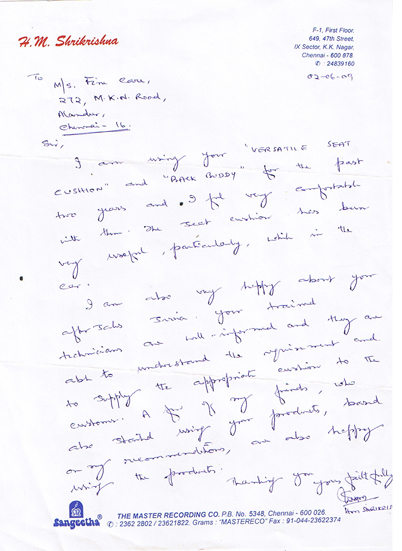 H.M. Shrikrishna
F-1, First Floor,
649, 47th Street,
IX Sector, K.K. Nagar,
Chennai - 600 078
✆ : 24839160
02-06-09
To
M/s. Fine Care,
272, M.K.N. Road,
Alandur,
Chennai - 16.
Sir,
I am using your "VERSATILE SEAT
CUSHION" and "BACK BUDDY" for the past
two years and I feel very comfortable
with them. The seat cushion has been
very useful, particularly, while in the
car.
I am also very happy about your
after sales service. Your trained
technicians are well-informed and they are
able to understand the requirement and
to supply the appropriate cushion to the
customer. A few of my friends, who
also started using your products, based
on my recommendations, are also happy
using the products.
Thanking you yours faithfully
Sangeetha
THE MASTER RECORDING CO. P.B. No. 5348, Chennai - 600 026.
✆ : 2362 2802 / 23621822. Grams : "MASTERECO" Fax : 91-044-23622374